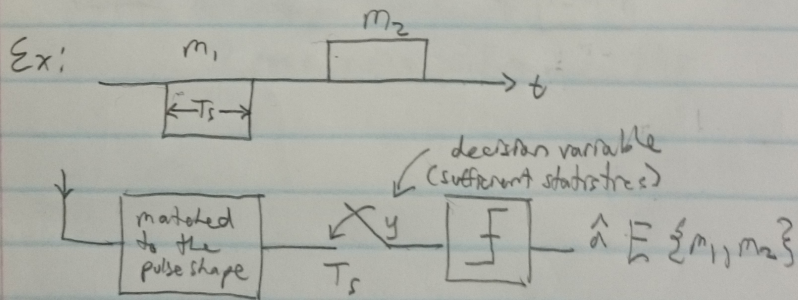 Ex:
m₁
m₂
←Ts→
t
decision variable
(sufficient statistics)
matched
to the
pulse shape
Ts
y
â ∈ {m₁, m₂}